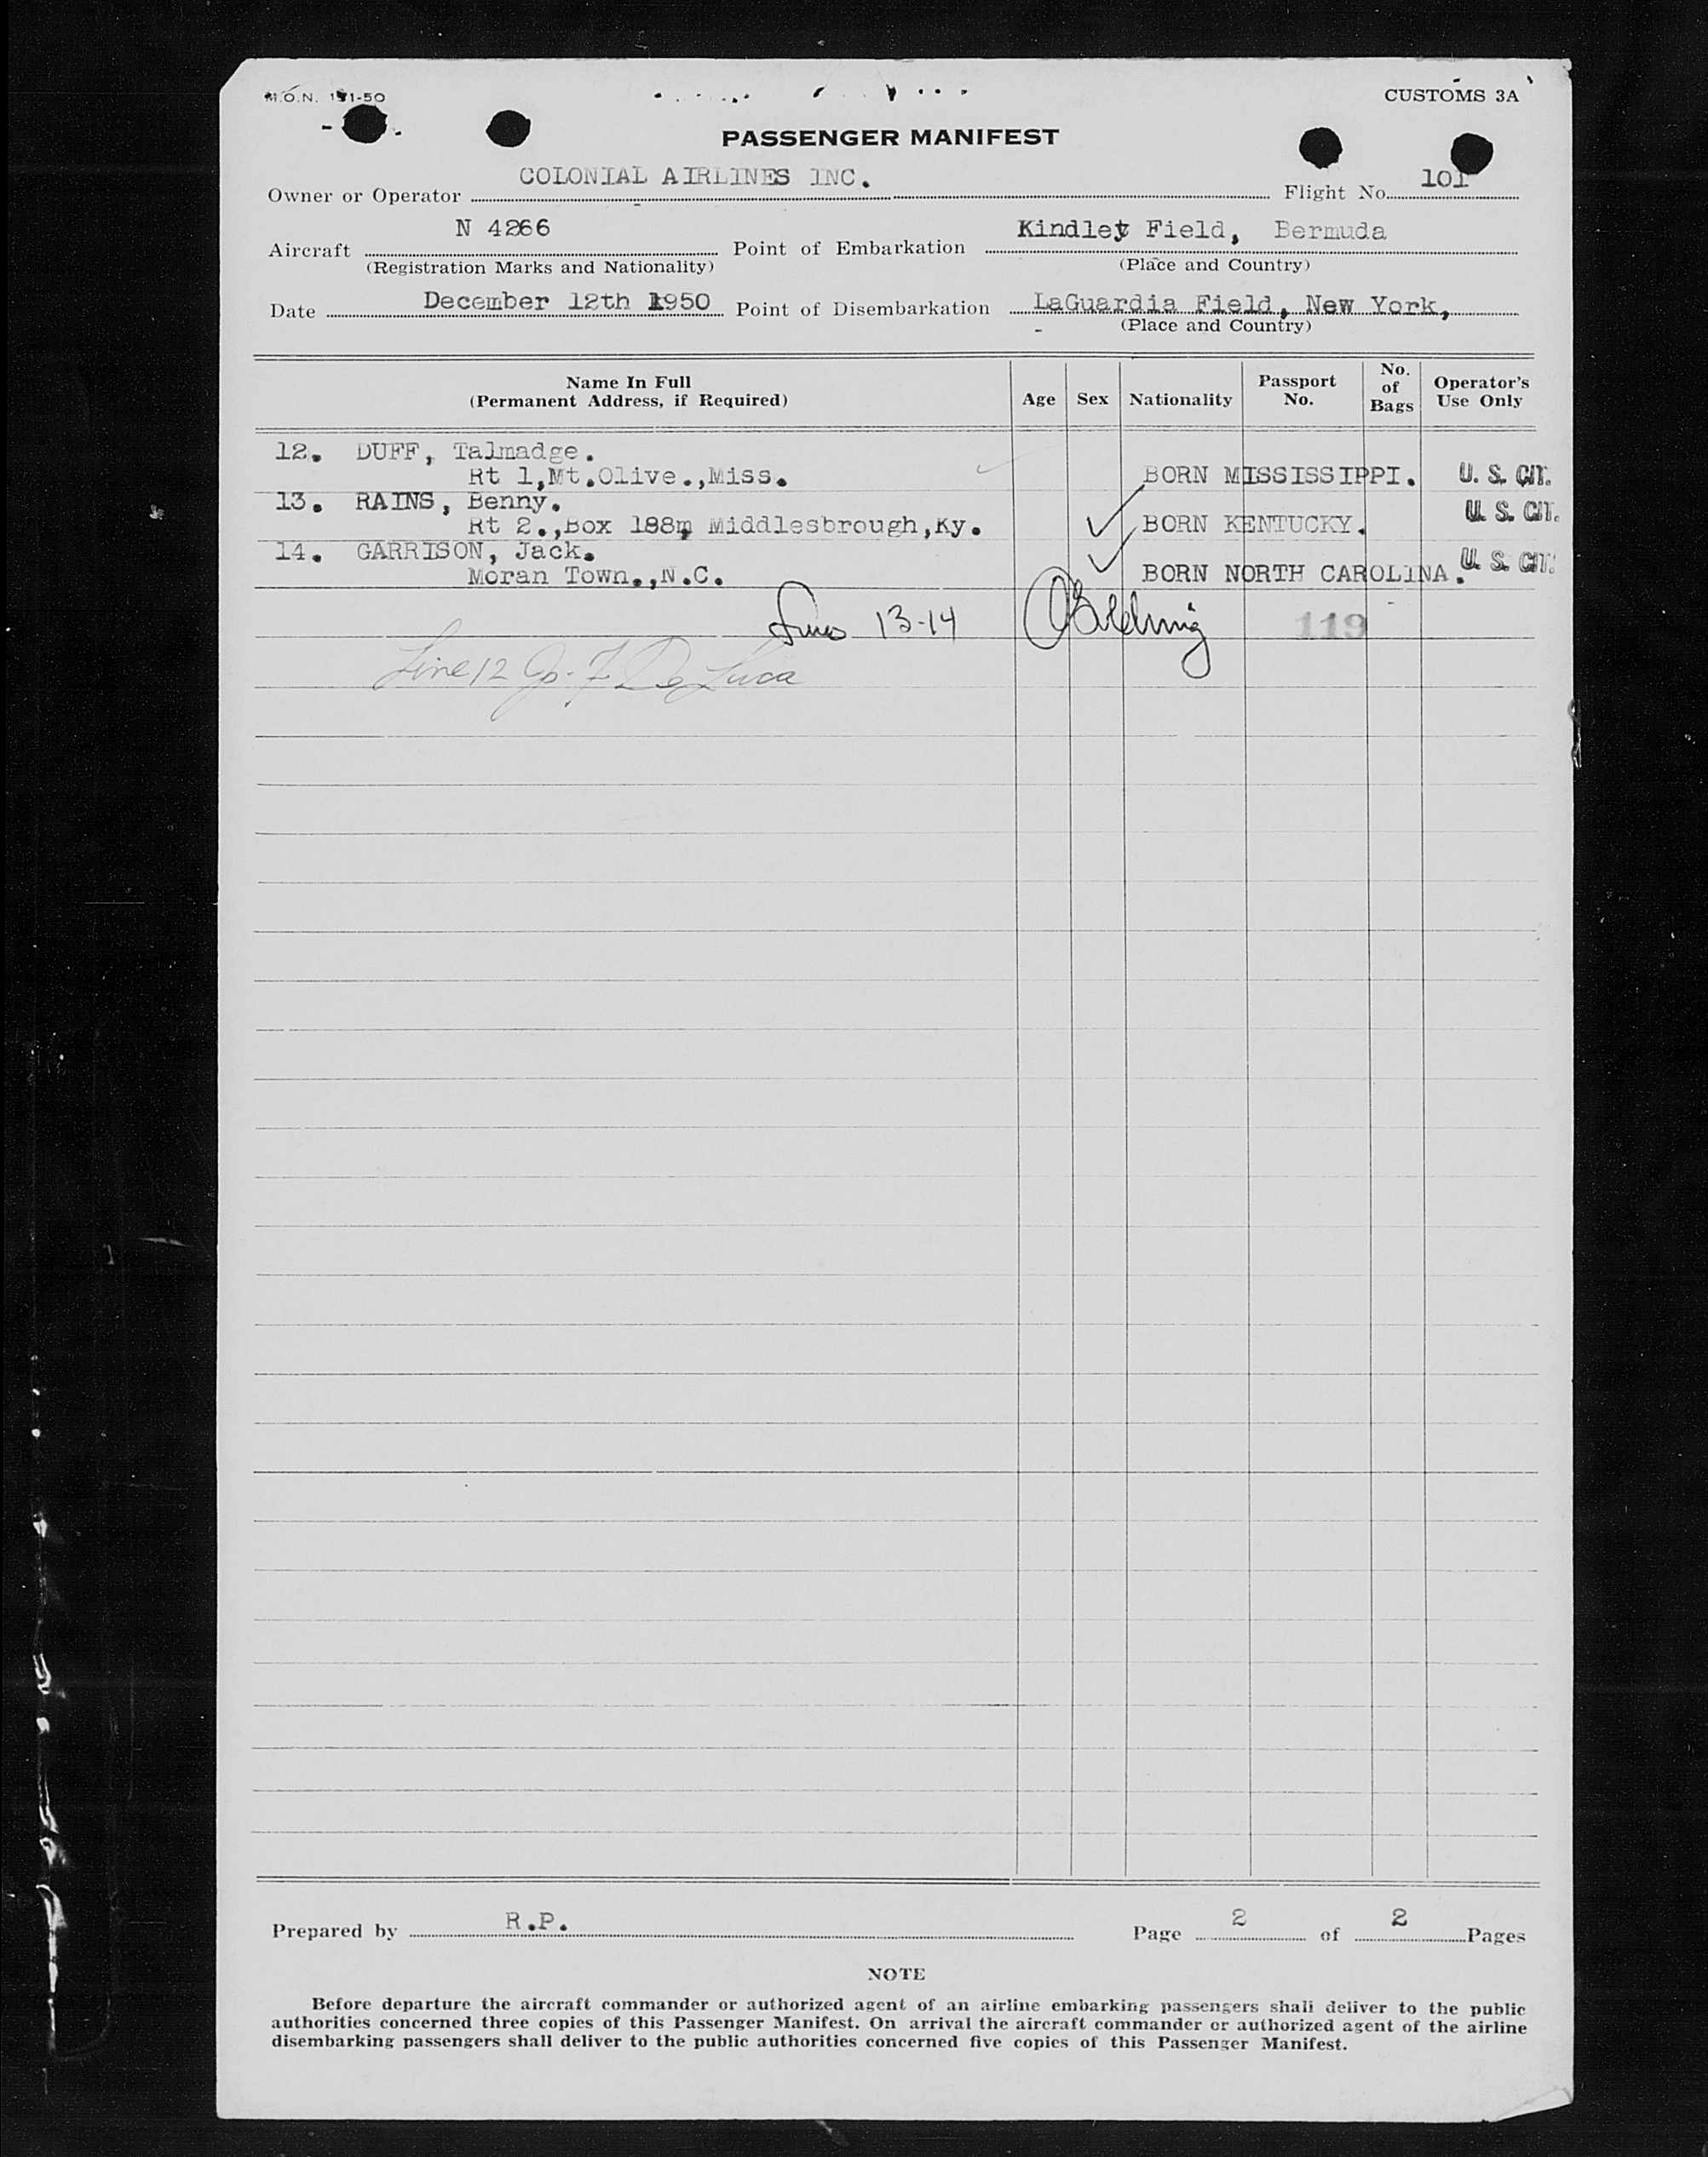 M.O.N. 191-50
CUSTOMS 3A
PASSENGER MANIFEST
Owner or Operator COLONIAL AIRLINES INC. Flight No. 101
Aircraft N 4266 Point of Embarkation Kindley Field, Bermuda
(Registration Marks and Nationality) (Place and Country)
Date December 12th 1950 Point of Disembarkation LaGuardia Field, New York,
(Place and Country)
Name In Full
(Permanent Address, if Required)
Age
Sex
Nationality
Passport No.
No. of Bags
Operator's Use Only
12. DUFF, Talmadge.
Rt 1,Mt.Olive.,Miss. BORN MISSISSIPPI. U. S. CIT.
13. RAINS, Benny. U. S. CIT.
Rt 2.,Box 188, Middlesbrough,Ky. BORN KENTUCKY.
14. GARRISON, Jack. U. S. CIT.
Moran Town.,N.C. BORN NORTH CAROLINA.
Lines 13-14 119
Line 12 Jos. F. De Luca
Prepared by R.P. Page 2 of 2 Pages
NOTE
Before departure the aircraft commander or authorized agent of an airline embarking passengers shall deliver to the public
authorities concerned three copies of this Passenger Manifest. On arrival the aircraft commander or authorized agent of the airline
disembarking passengers shall deliver to the public authorities concerned five copies of this Passenger Manifest.